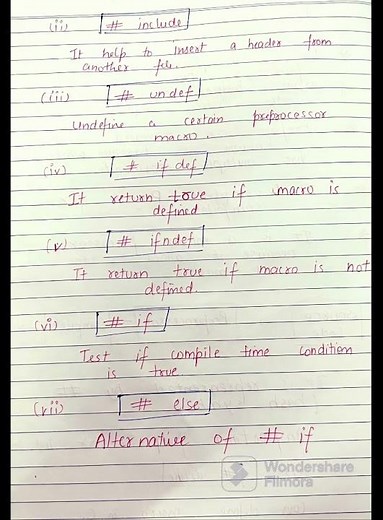 (ii) # include
It help to insert a header from
another file.
(iii) # undef
Undefine a certain preprocessor
macro.
(iv) # if def
It return true if macro is
defined
(v) # ifndef
It return true if macro is not
defined.
(vi) # if
Test if compile time condition
is true
(vii) # else
Alternative of # if
Wondershare
Filmora